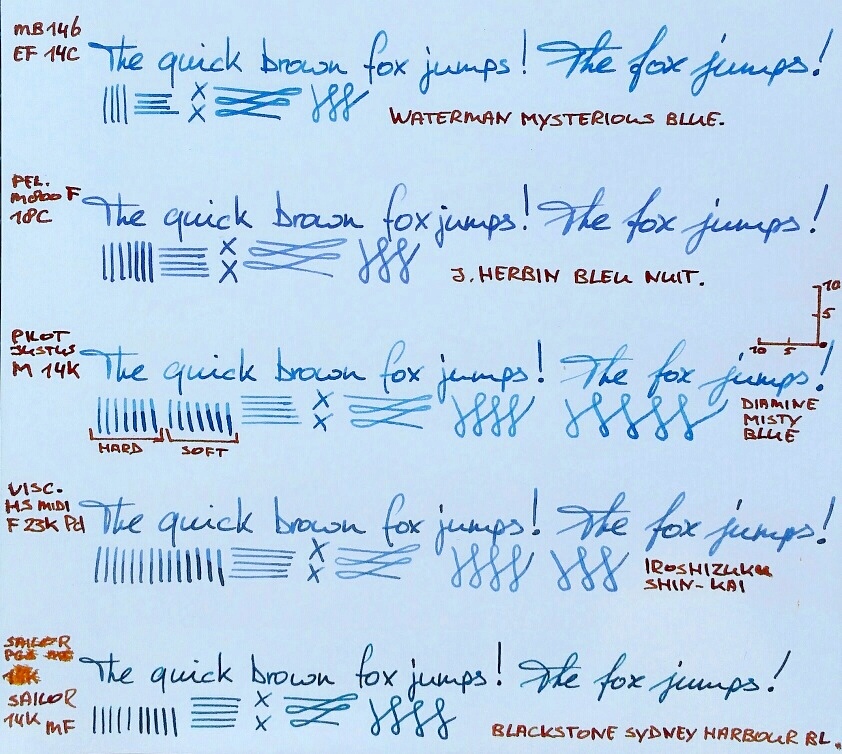 MB 146
EF 14C
The quick brown fox jumps! The fox jumps!
WATERMAN MYSTERIOUS BLUE.
PEL.
M800 F
18C
The quick brown fox jumps! The fox jumps!
J. HERBIN BLEU NUIT.
10
5
10 5
PILOT
JUSTUS
M 14K
The quick brown fox jumps! The fox jumps!
HARD SOFT
DIAMINE
MISTY
BLUE
VISC.
HS MIDI
F 23K Pd
The quick brown fox jumps! The fox jumps!
IROSHIZUKU
SHIN-KAI
SAILOR
SAILOR
14K MF
The quick brown fox jumps! The fox jumps!
BLACKSTONE SYDNEY HARBOUR BL.